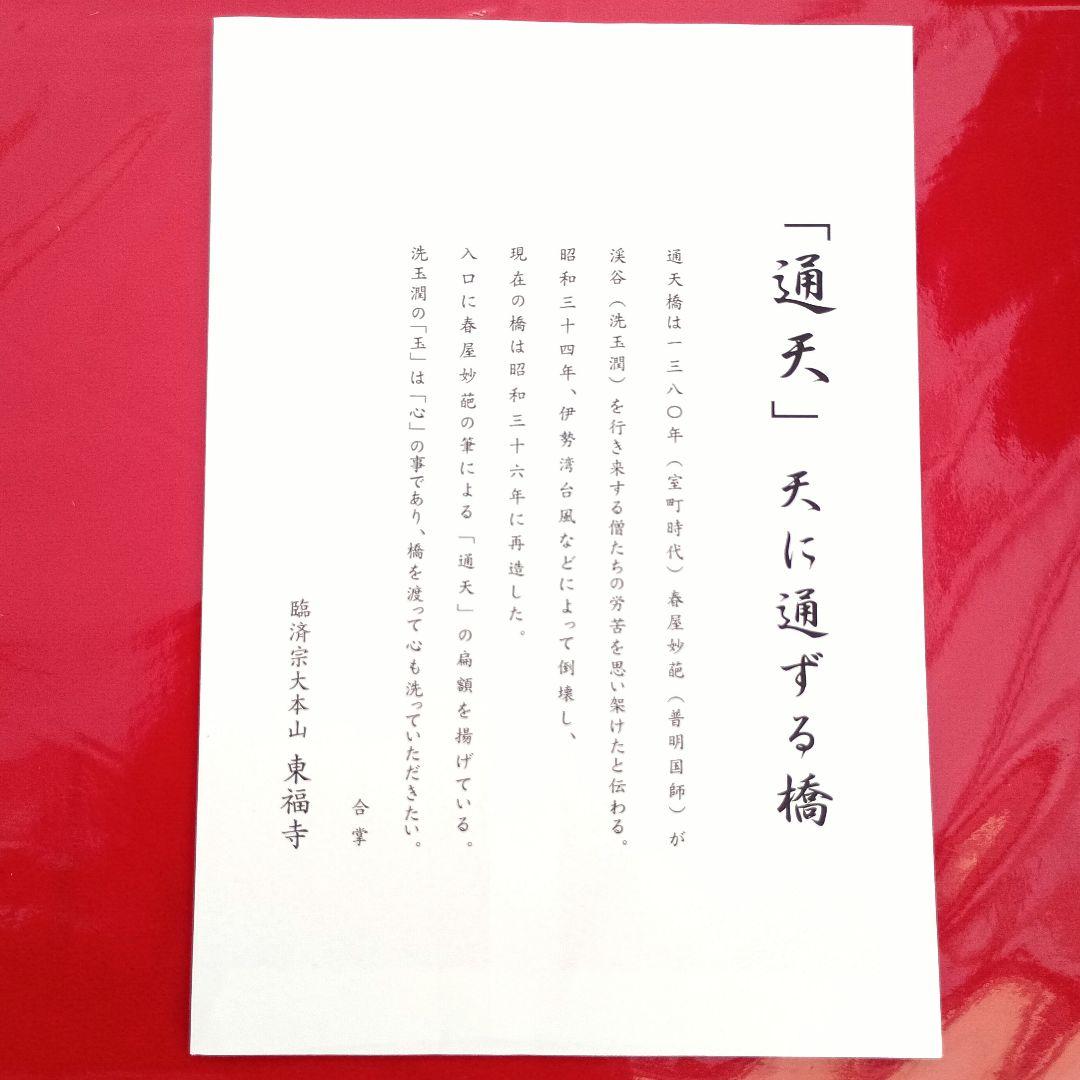 「通天」 天に通ずる橋
通天橋は一三八〇年（室町時代）春屋妙葩（普明国師）が
渓谷（洗玉潤）を行き来する僧たちの労苦を思い架けたと伝わる。
昭和三十四年、伊勢湾台風などによって倒壊し、
現在の橋は昭和三十六年に再造した。
入口に春屋妙葩の筆による「通天」の扁額を揚げている。
洗玉潤の「玉」は「心」の事であり、橋を渡って心も洗っていただきたい。
合掌
臨済宗大本山 東福寺